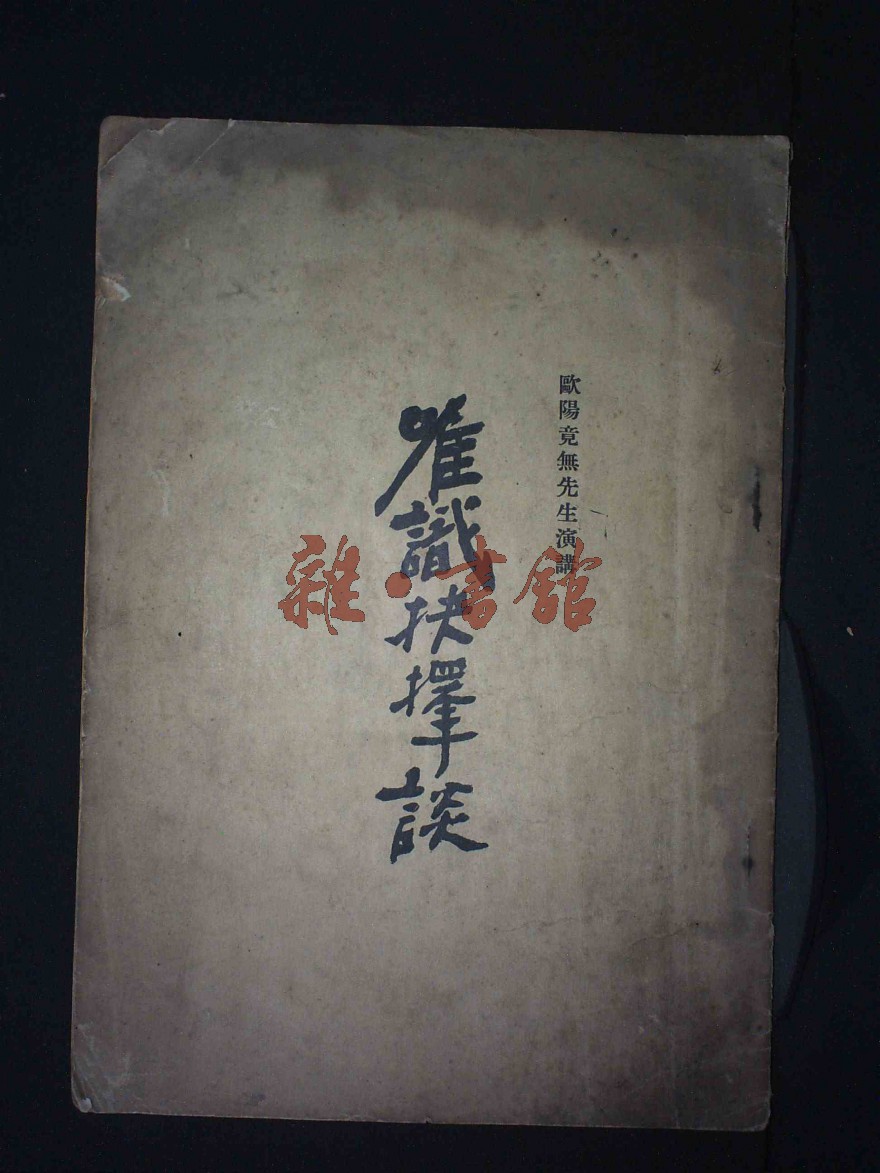 歐陽竟無先生演講
唯識抉擇談
雜·書館